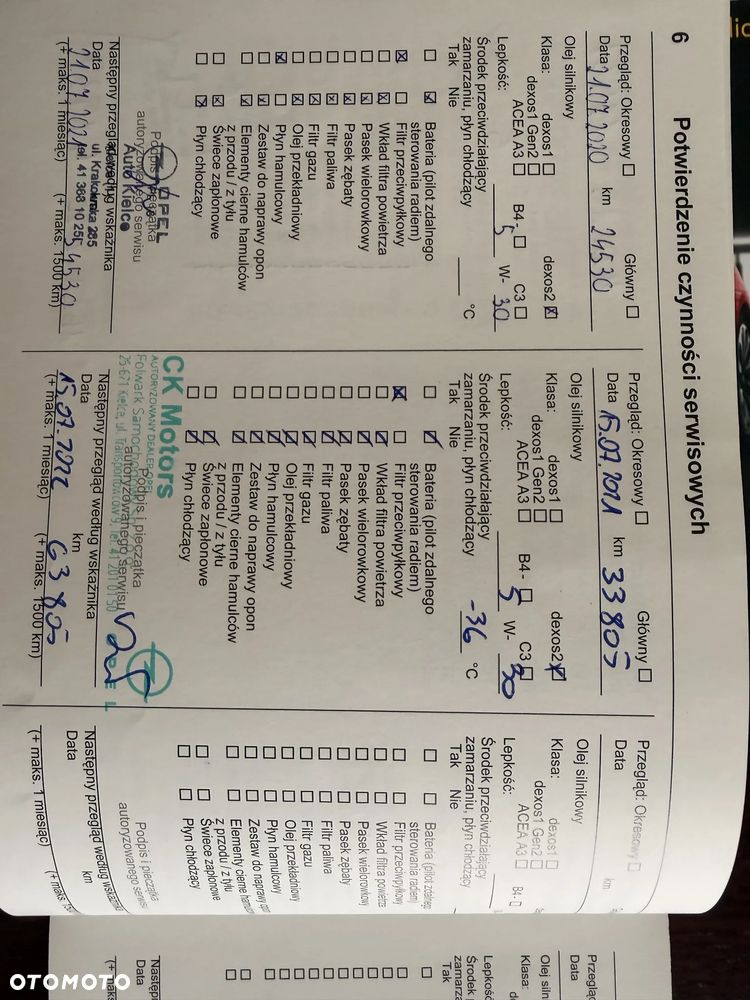 6
Potwierdzenie czynności serwisowych
Przegląd: Okresowy ☐ Główny ☐
Data 21.07.2020 km 24530
Olej silnikowy
Klasa: dexos1 ☐ dexos2 ☒
dexos1 Gen2 ☐
ACEA A3 ☐ B4- ☐ C3 ☐
Lepkość: 5 W- 30
Środek przeciwdziałający
zamarzaniu, płyn chłodzący °C
Tak Nie
☐ ☒ Bateria (pilot zdalnego
sterowania radiem)
☒ ☐ Filtr przeciwpyłkowy
☐ ☒ Wkład filtra powietrza
☐ ☒ Pasek wielorowkowy
☐ ☒ Pasek zębaty
☐ ☒ Filtr paliwa
☐ ☒ Filtr gazu
☐ ☒ Olej przekładniowy
☒ ☐ Płyn hamulcowy
☐ ☒ Zestaw do naprawy opon
☐ ☒ Elementy cierne hamulców
z przodu / z tyłu
☐ ☒ Świece zapłonowe
☐ ☒ Płyn chłodzący
OPEL
Podpis i pieczątka
autoryzowanego serwisu
Auto Kielce
ul. Krakowska 285
tel. 41 368 10 25
Następny przegląd według wskaźnika
Data km
21.07.2021 54530
(+ maks. 1 miesiąc) (+ maks. 1500 km)
Przegląd: Okresowy ☐ Główny ☐
Data 15.07.2021 km 33805
Olej silnikowy
Klasa: dexos1 ☐ dexos2 ☒
dexos1 Gen2 ☐
ACEA A3 ☐ B4- ☐ C3 ☐
Lepkość: 5 W- 30
Środek przeciwdziałający
zamarzaniu, płyn chłodzący -36 °C
Tak Nie
☐ ☒ Bateria (pilot zdalnego
sterowania radiem)
☒ ☐ Filtr przeciwpyłkowy
☐ ☒ Wkład filtra powietrza
☐ ☒ Pasek wielorowkowy
☐ ☒ Pasek zębaty
☐ ☒ Filtr paliwa
☐ ☒ Filtr gazu
☐ ☒ Olej przekładniowy
☐ ☒ Płyn hamulcowy
☐ ☒ Zestaw do naprawy opon
☐ ☒ Elementy cierne hamulców
z przodu / z tyłu
☐ ☒ Świece zapłonowe
☐ ☒ Płyn chłodzący
CK Motors
AUTORYZOWANY DEALER OPEL
Folwark Samochodowy
25-671 Kielce, ul. Transportowców 9, tel. 41 201 01 50
OPEL
Podpis i pieczątka
autoryzowanego serwisu
Następny przegląd według wskaźnika
Data km
15.07.2022 63805
(+ maks. 1 miesiąc) (+ maks. 1500 km)
Przegląd: Okresowy ☐
Data km
Olej silnikowy
Klasa: dexos1 ☐
dexos1 Gen2 ☐
ACEA A3 ☐ B4- ☐
Lepkość:
Środek przeciwdziałający
zamarzaniu, płyn chłodzący
Tak Nie
☐ ☐ Bateria (pilot zdalnego
sterowania radiem)
☐ ☐ Filtr przeciwpyłkowy
☐ ☐ Wkład filtra powietrza
☐ ☐ Pasek wielorowkowy
☐ ☐ Pasek zębaty
☐ ☐ Filtr paliwa
☐ ☐ Filtr gazu
☐ ☐ Olej przekładniowy
☐ ☐ Płyn hamulcowy
☐ ☐ Zestaw do naprawy
☐ ☐ Elementy cierne
z przodu / z tyłu
☐ ☐ Świece zapłonowe
☐ ☐ Płyn chłodzący
Podpis i pieczątka
autoryzowanego serwisu
Następny przegląd według
Data km
(+ maks. 1 miesiąc) (+ maks.
Przeglą
Data
Olej siln
Klasa:
Lepkość
Środek
zamarza
Tak
Następny
Data
(+ maks.
OTOMOTO